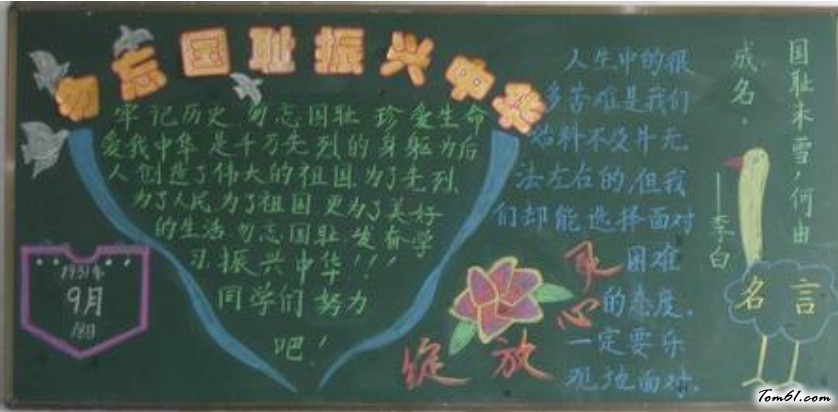 勿忘国耻振兴中华
牢记历史 勿忘国耻 珍爱生命
爱我中华 是千万先烈的身躯为后
人创造了伟大的祖国.为了先烈、
为了人民 为了祖国 更为了美好
的生活 勿忘国耻.发奋学
习.振兴中华!!!
同学们努力
吧!
1931年
9月
18日
人生中的很
多苦难是我们
始料不及并无
法左右的,但我
们却能选择面对
困难
的态度.
一定要乐
观地面对.
绽放
爽心
国耻未雪,何由
成名.
——李白
名言
Tom61.com